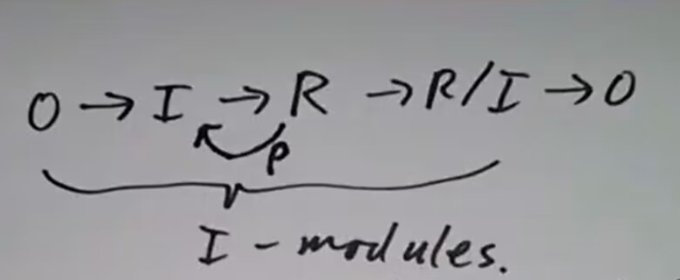 0 → I → R → R/I → 0
p
I - modules.